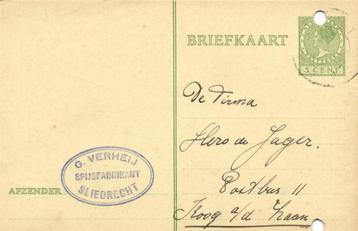 BRIEFKAART
5 CENT
De Firma
Hero de Jager.
Postbus 11
Koog a/d Zaan
G. VERHEIJ
SPIJSFABRIKANT
SLIEDRECHT
AFZENDER